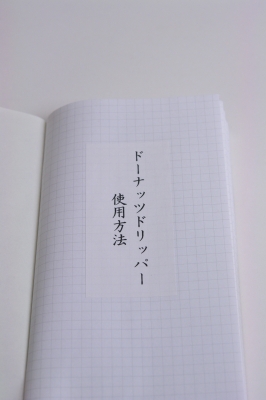 ドーナッツドリッパー
使用方法